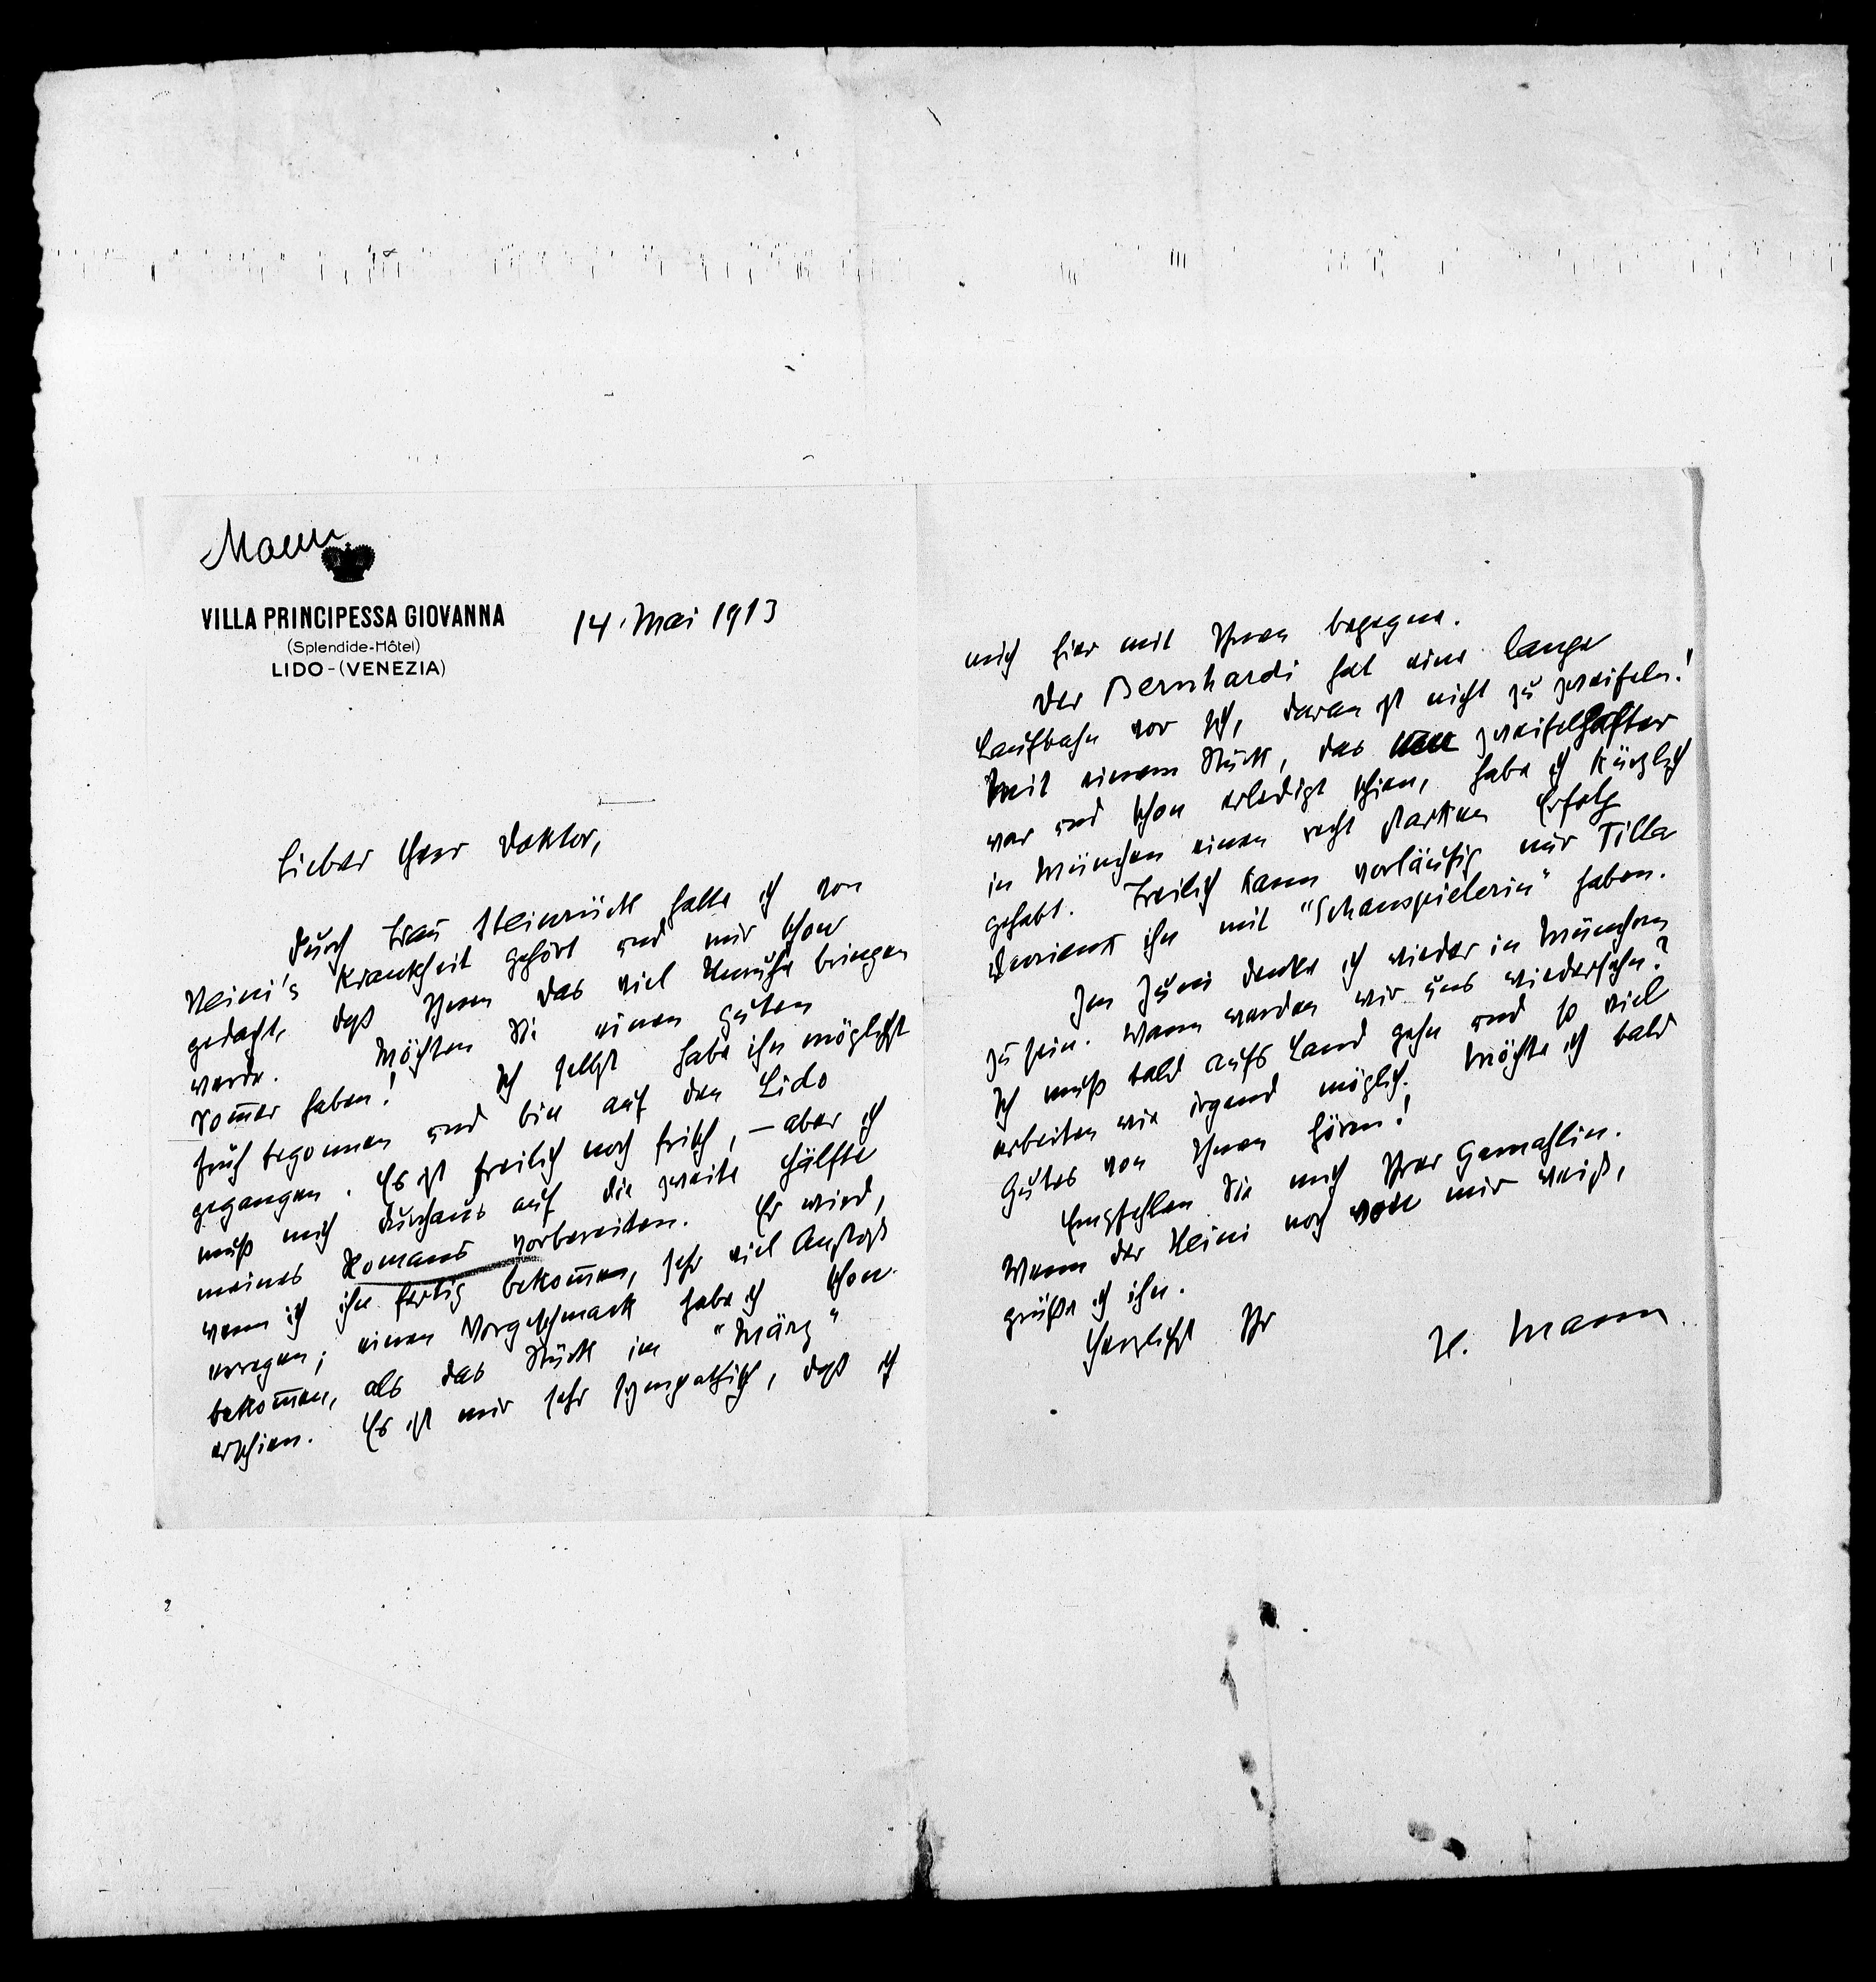 Mann
VILLA PRINCIPESSA GIOVANNA
(Splendide-Hôtel)
LIDO-(VENEZIA)
14. Mai 1913
Lieber Herr Doktor,
durch Frau Steinrück hatte ich von
Heini's Krankheit gehört und mir schon
gedacht, daß Ihnen das viel Unruhe bringen
werde. Möchten Sie einen guten
Som̄er haben! Ich selbst habe ihn möglichst
früh begonnen und bin auf den Lido
gegangen. Es ist freilich noch frisch, – aber ich
muß mich durchaus auf die zweite Hälfte
meines Romans vorbereiten. Er wird,
wenn ich ihn fertig bekom̄en, sehr viel Anstoß
erregen; einen Vorgeschmack habe ich schon
bekom̄en, als das Stück im "März"
erschien. Es ist mir sehr sympathisch, daß ich
mich hier mit Ihnen begegne.
Der Bernhardi hat eine lange
Laufbahn vor sich, daran ist nicht zu zweifeln!
Mit einem Stück, das zweifelhafter
war und schon erledigt schien, habe ich kürzlich
in München einen recht starken Erfolg
gehabt. Freilich kann vorläufig nur Tilla
Durieux ihn mit "Schauspielerin" haben.
Im Juni denke ich wieder in München
zu sein. Wann werden wir uns wiedersehn?
Ich muß bald aufs Land gehn und so viel
arbeiten wie irgend möglich. Möchte ich bald
Gutes von Ihnen hören!
Empfehlen Sie mich Ihrer Gemahlin.
Wenn der Heini noch von mir weiß,
grüße ich ihn.
Herzlichst Ihr
H. Mann